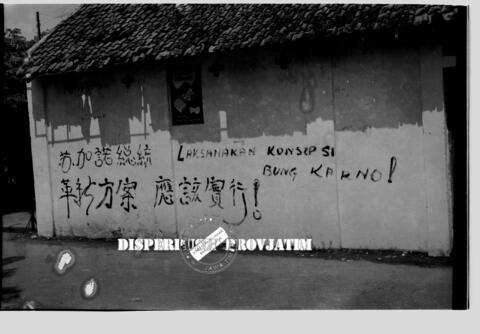 苏加諾總統
革新方案 應該實行!
LAKSANAKAN KONSEPSI
BUNG KARNO!
DISPERPUSIP PROVJATIM